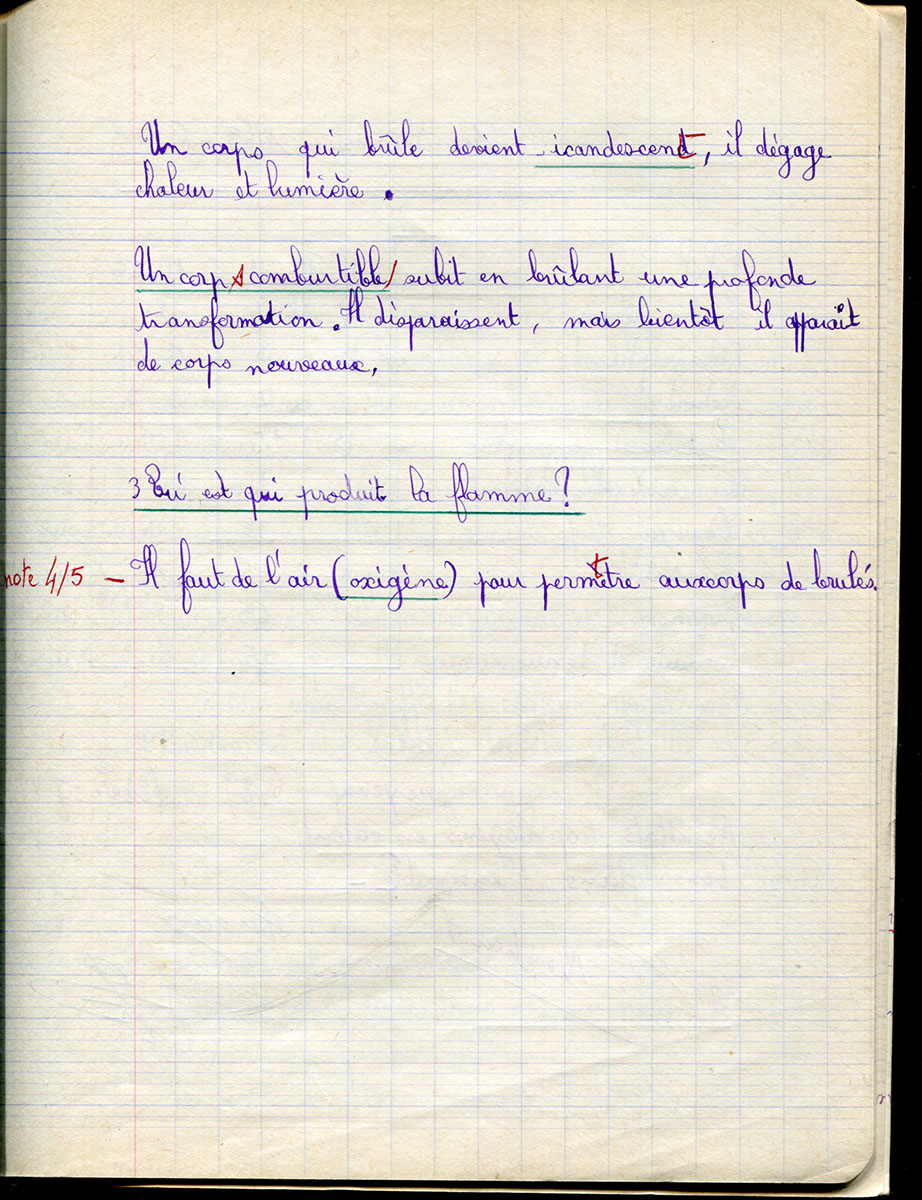 Un corps qui brûle devient icandescent, il dégage
chaleur et lumière.
Un corps combustible subit en brûlant une profonde
transformation. Il disparaissent, mais bientôt il apparaît
de corps nouveaux,
3 Qu'est qui produit la flamme?
note 4/5 - Il faut de l'air (oxigène) pour permettre aux corps de brulés.